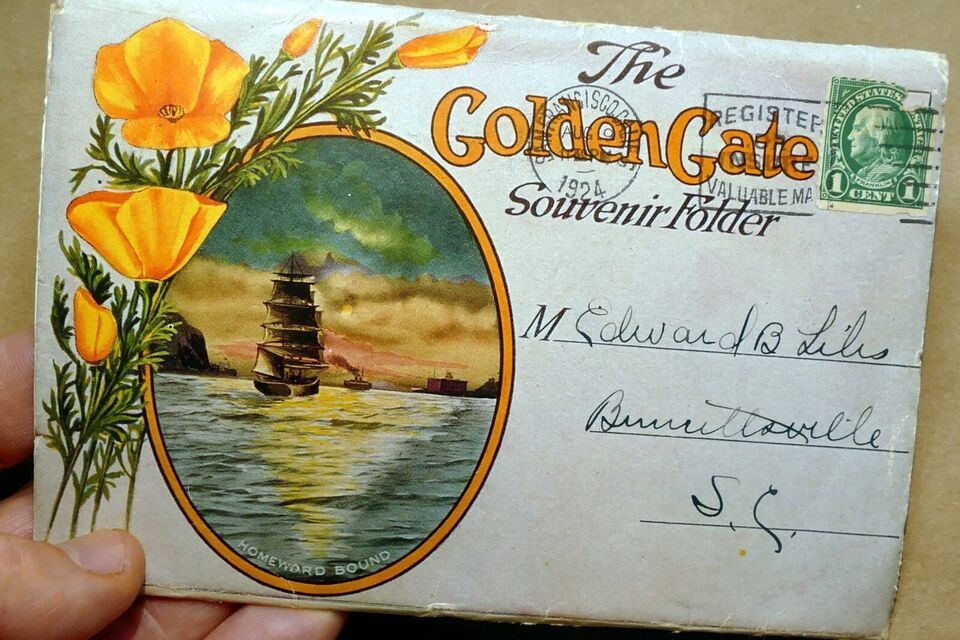 The
Golden Gate
Souvenir Folder
1924
REGISTER
VALUABLE MA
UNITED STATES
FRANKLIN
1 CENT 1
M Edward B Liles
Bennettsville
S. C.
HOMEWORD BOUND